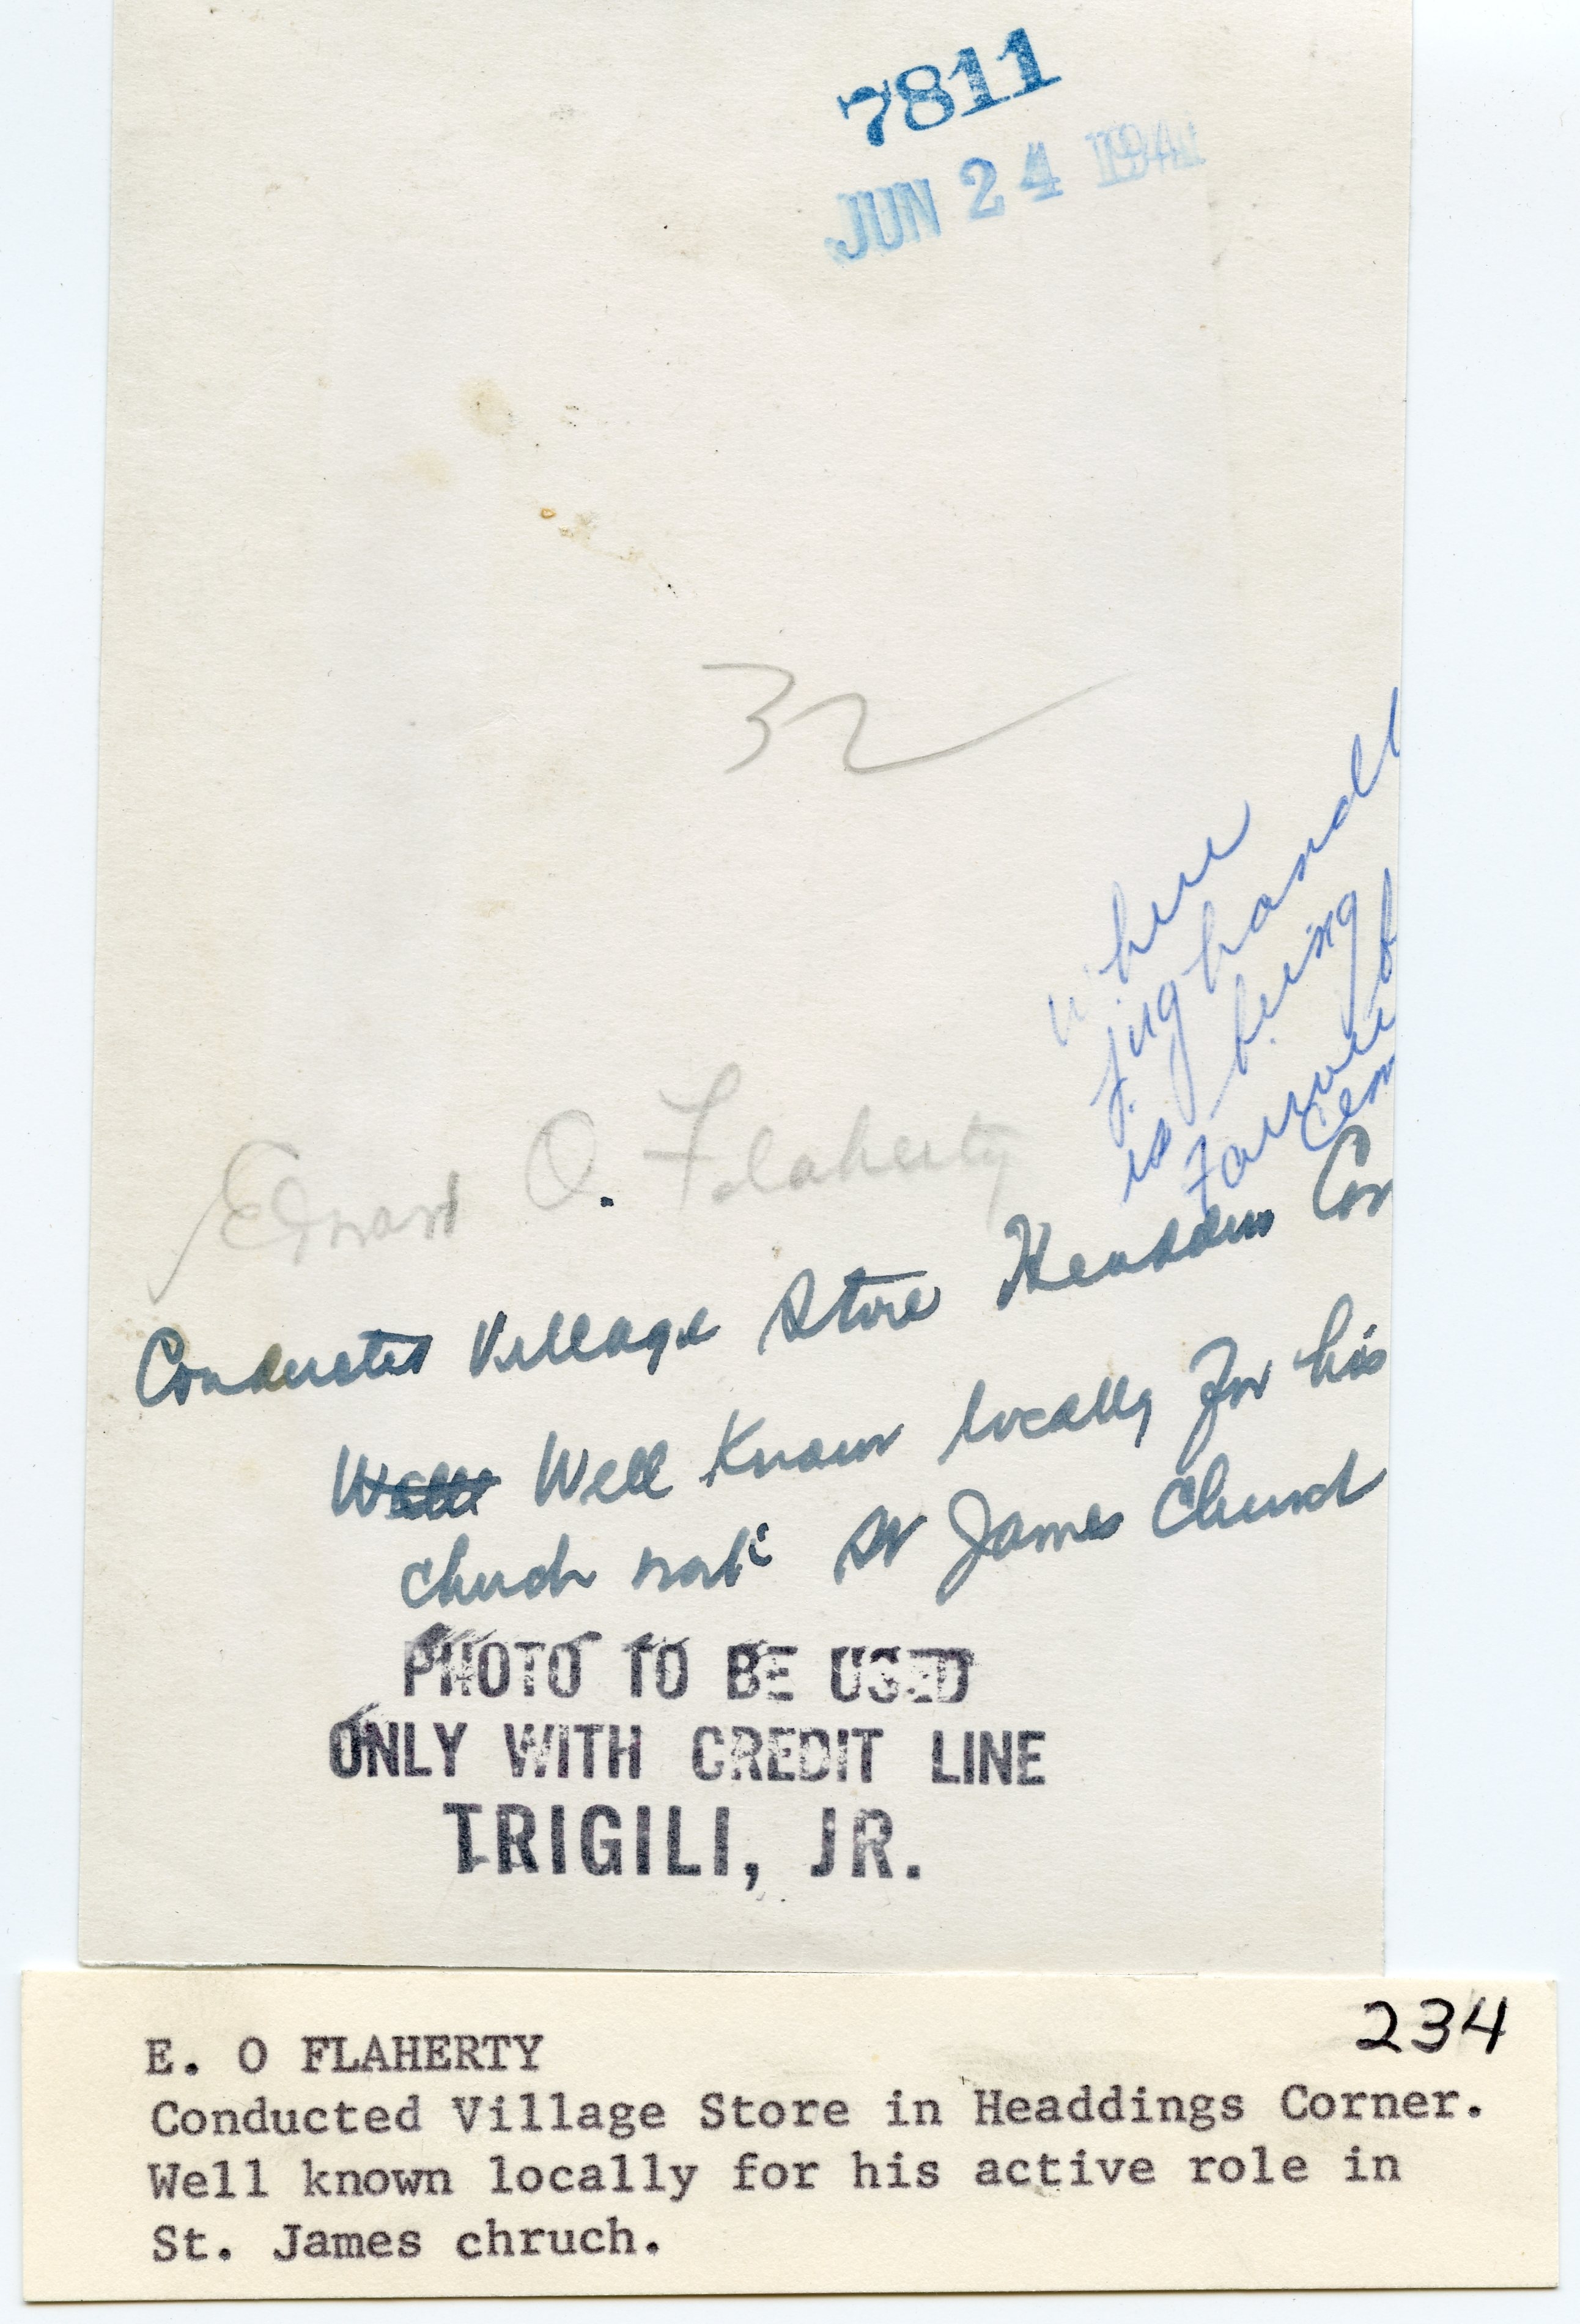 7811
JUN 24 1941
32
where
jughandl
is being
Cem
Edward O. Flaherty
Conducted Village Store Headdens Cor
Well Known locally for his
Church work St James Church
PHOTO TO BE USED
ONLY WITH CREDIT LINE
TRIGILI, JR.
234
E. O FLAHERTY
Conducted Village Store in Headdings Corner.
Well known locally for his active role in
St. James chruch.